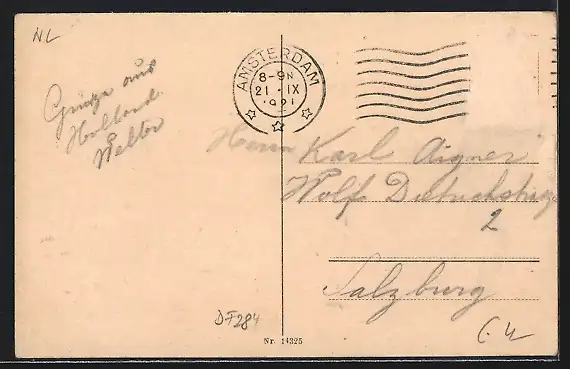 NL
AMSTERDAM
8-9N
21 · IX
1921
Grüße aus
Holland
Walter
Herrn Karl Aigner
Wolf Dietrichstr.
2
Salzburg
DF284
Nr. 14325